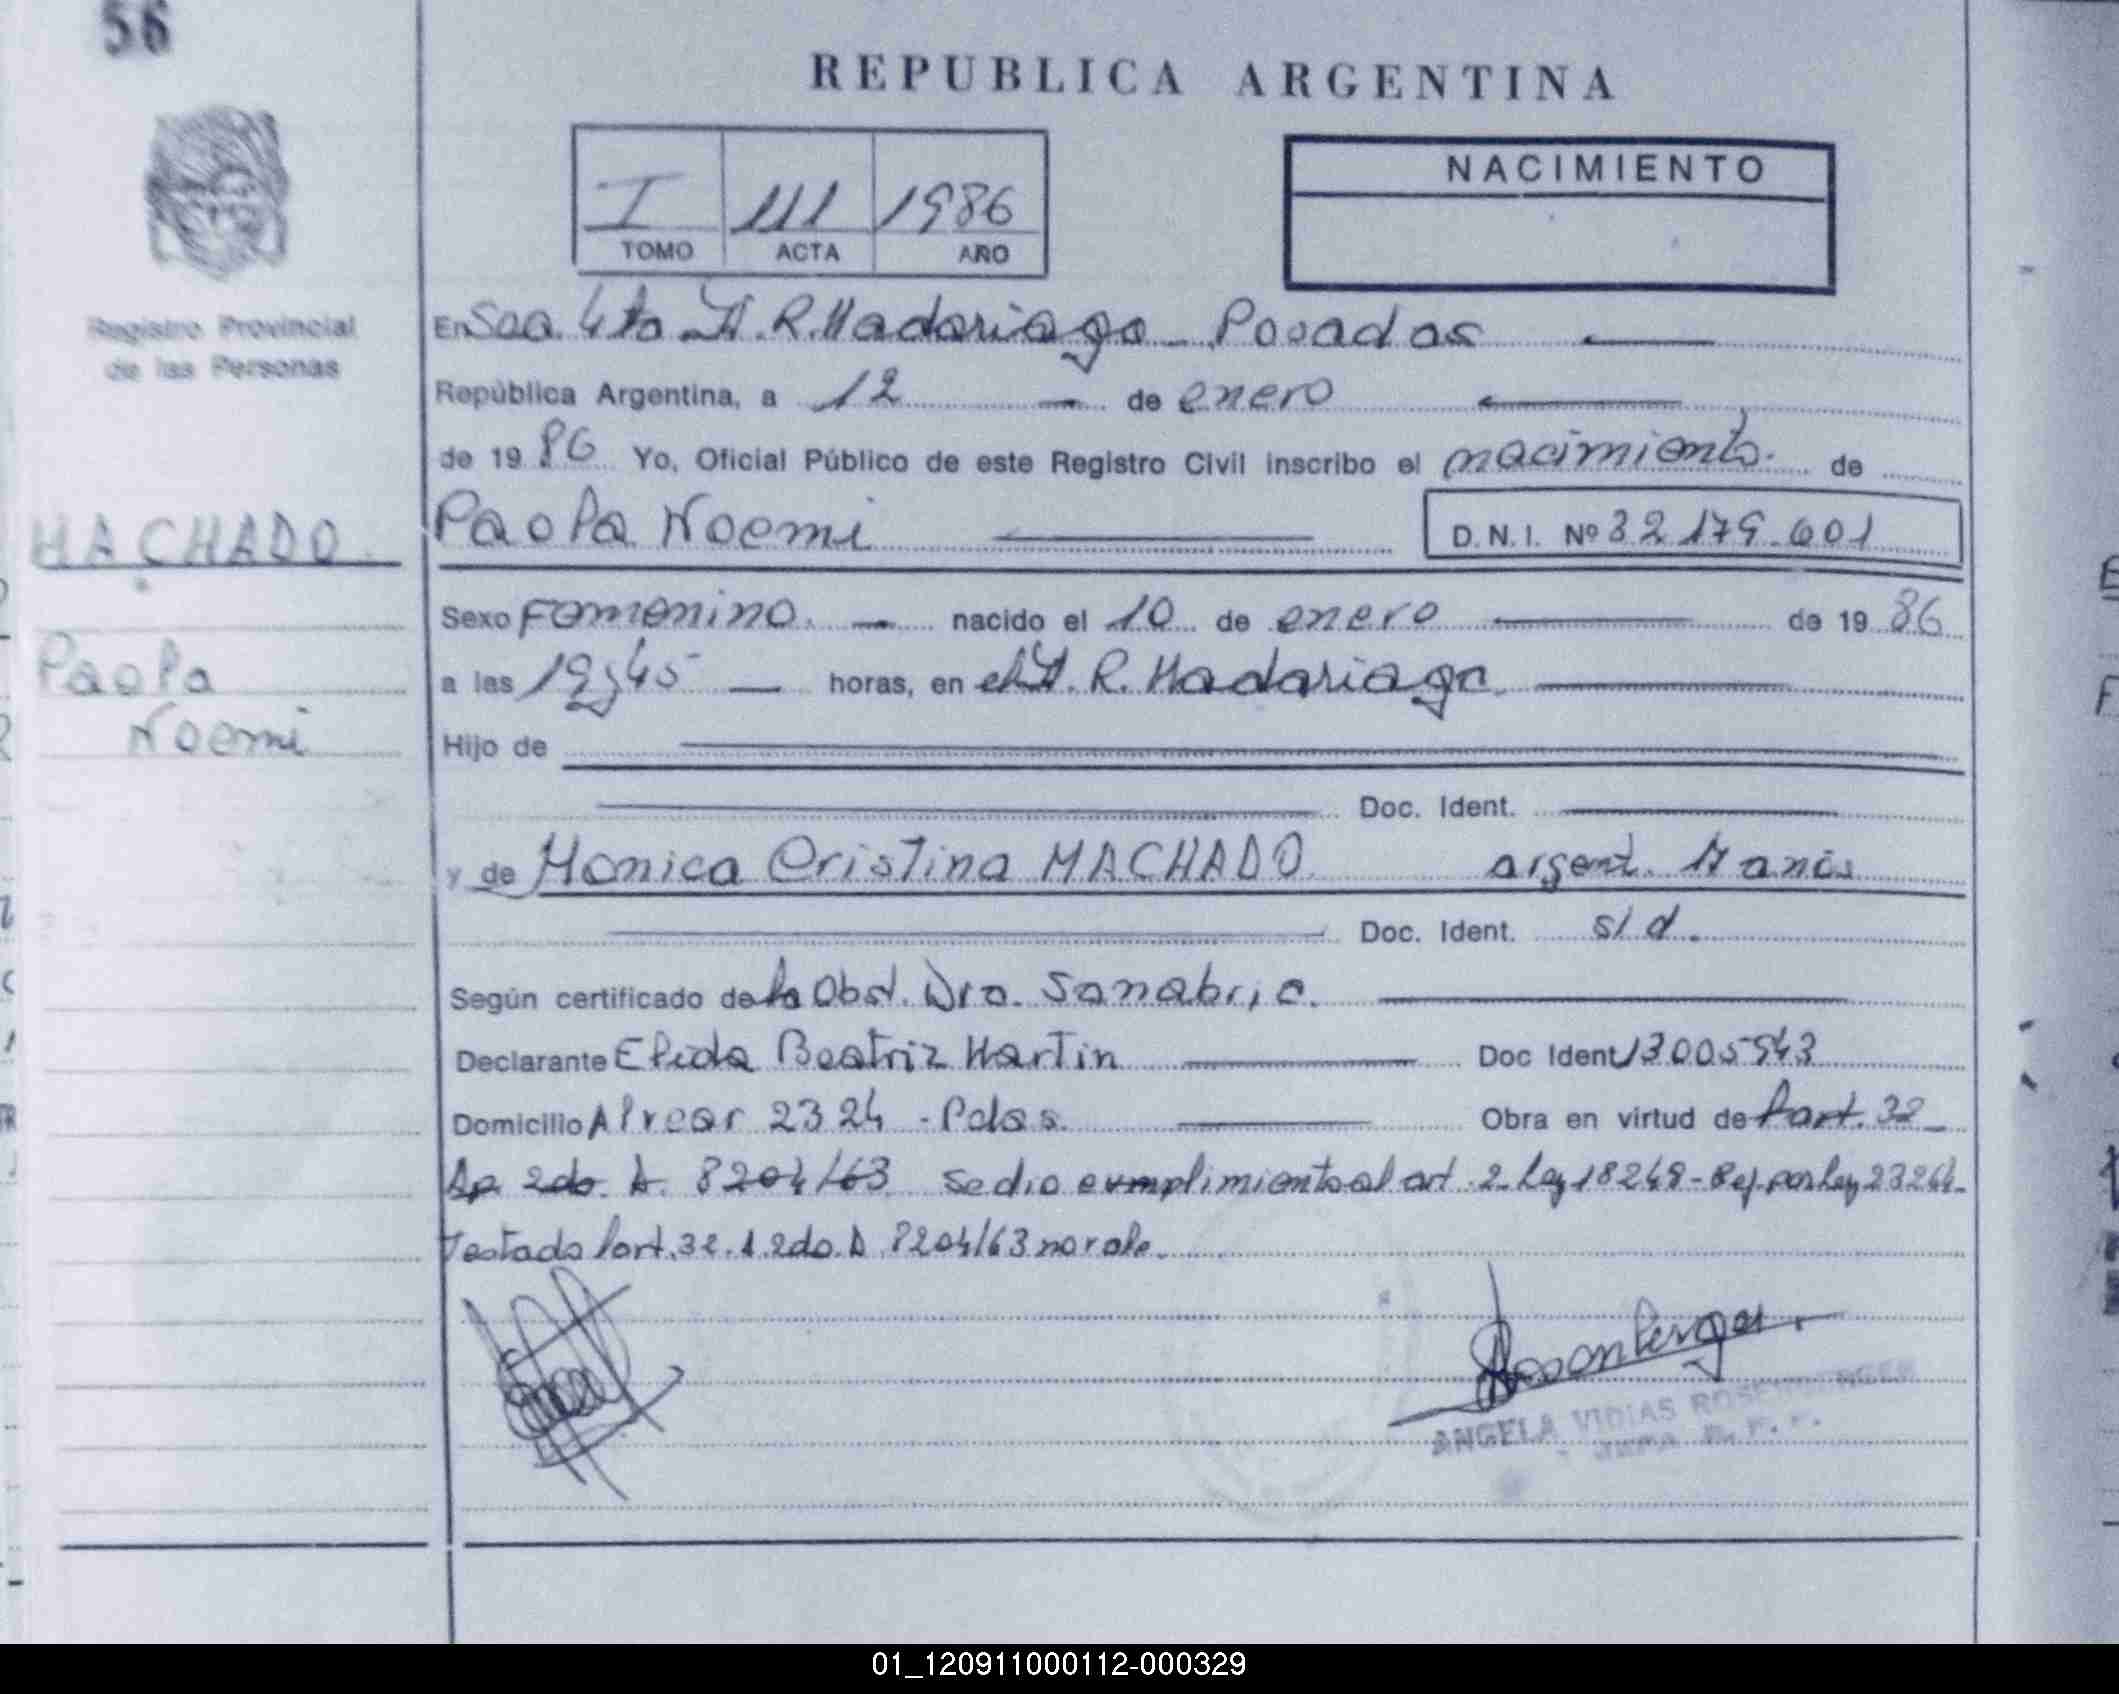 56
REPUBLICA ARGENTINA
I 111 1986
TOMO ACTA AÑO
NACIMIENTO
Registro Provincial
de las Personas
En Secc. 4ta H. R. Madariaga - Posadas
República Argentina, a 12 de enero
de 19 86 Yo, Oficial Público de este Registro Civil inscribo el nacimiento. de
MACHADO
Paola Noemi
D.N.I. Nº 32 179.601
Sexo Femenino. nacido el 10 de enero de 19 86
Paola
Noemi
a las 19,45 horas, en el H. R. Madariaga
Hijo de
Doc. Ident.
y de Monica Cristina MACHADO argent. 17 años
Doc. Ident. s/d.
Según certificado de la Obst. Dra. Sanabria.
Declarante Elida Beatriz Martin Doc Ident 13005543
Domicilio Alvear 2324 - Pdas. Obra en virtud de l art. 32
Ap 2do. D. 8204/63 se dio cumplimiento al art. 2 Ley 18248 - Ref. por Ley 23264-
Testado l art. 32. A. 2do. D. 8204/63 no vale.
Rosenberger
ANGELA VIDIAS ROSENBERGER